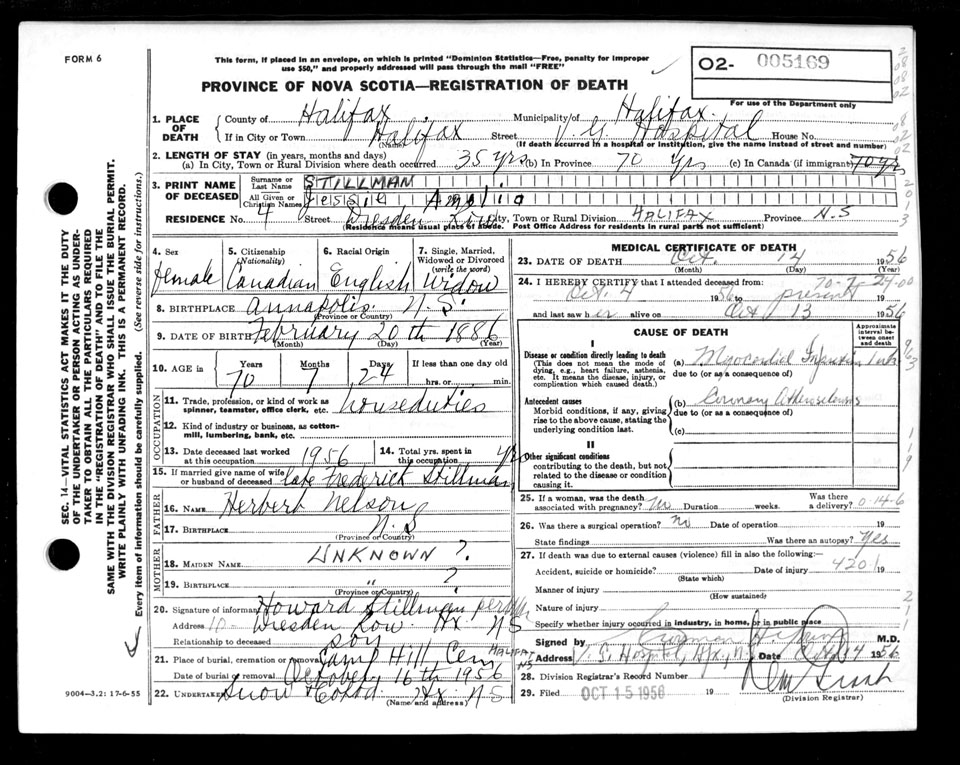 FORM 6
This form, if placed in an envelope, on which is printed "Dominion Statistics—Free, penalty for improper
use $50," and properly addressed will pass through the mail "FREE"
O2- 005169
For use of the Department only
PROVINCE OF NOVA SCOTIA—REGISTRATION OF DEATH
1. PLACE OF DEATH
County of Halifax Municipality of Halifax
If in City or Town Halifax Street V. G. Hospital House No.
(Name) (If death occurred in a hospital or institution, give the name instead of street and number)
2. LENGTH OF STAY (in years, months and days)
(a) In City, Town or Rural Division where death occurred 35 yrs (b) In Province 70 yrs (c) In Canada (if immigrant) 70 yrs
3. PRINT NAME OF DECEASED
Surname or Last Name STILLMAN
All Given or Christian Names Jessie
RESIDENCE No. 4 Street Dresden Row City, Town or Rural Division HALIFAX Province N.S
(Residence means usual place of abode. Post Office Address for residents in rural parts not sufficient)
4. Sex female
5. Citizenship (Nationality) Canadian
6. Racial Origin English
7. Single, Married, Widowed or Divorced (write the word) Widow
8. BIRTHPLACE Annapolis N.S.
(Province or Country)
9. DATE OF BIRTH February 20th 1886
(Month) (Day) (Year)
10. AGE in Years 70 Months 7 Days 24 If less than one day old
hrs. or min.
OCCUPATION
11. Trade, profession, or kind of work as
spinner, teamster, office clerk, etc. houseduties
12. Kind of industry or business, as cotton-
mill, lumbering, bank, etc.
13. Date deceased last worked
at this occupation 1956
14. Total yrs. spent in
this occupation yrs
15. If married give name of wife
or husband of deceased late Frederick Stillman
FATHER
16. NAME Herbert Nelson
17. BIRTHPLACE N.S
(Province or Country)
MOTHER
18. MAIDEN NAME UNKNOWN ?
19. BIRTHPLACE " ?
(Province or Country)
20. Signature of informant Howard Stillman
Address 10 Dresden Row Hx NS
Relationship to deceased son
21. Place of burial, cremation or removal Camp Hill Cem HALIFAX NS
Date of burial or removal October 16th 1956
22. Undertaker Snow & Co Ltd. Hx N.S
(Name and address)
MEDICAL CERTIFICATE OF DEATH
23. DATE OF DEATH Oct. 14 1956
(Month) (Day) (Year)
24. I HEREBY CERTIFY that I attended deceased from:
Oct. 4 1956 to present 19
and last saw her alive on Oct 13 1956
CAUSE OF DEATH
Approximate interval between onset and death
I
Disease or condition directly leading to death
(This does not mean the mode of
dying, e.g., heart failure, asthenia,
etc. It means the disease, injury, or
complication which caused death.)
(a) Myocardial Infarction 1 wk
due to (or as a consequence of)
Antecedent causes
Morbid conditions, if any, giving
rise to the above cause, stating the
underlying condition last.
(b) Coronary Atherosclerosis
due to (or as a consequence of)
(c)
II
Other significant conditions
contributing to the death, but not
related to the disease or condition
causing it.
25. If a woman, was the death
associated with pregnancy? no Duration weeks. Was there a delivery?
0-14-6
26. Was there a surgical operation? no Date of operation 19
State findings Was there an autopsy? Yes
27. If death was due to external causes (violence) fill in also the following:
Accident, suicide or homicide? Date of injury 19
420.1
(State which)
Manner of injury
(How sustained)
Nature of injury
Specify whether injury occurred in industry, in home, or in public place
Signed by M.D.
Address V. G. Hospital, Hfx, N.S. Date Oct 14 1956
28. Division Registrar's Record Number
29. Filed OCT 15 1956 19
(Division Registrar)
SEC. 14—VITAL STATISTICS ACT MAKES IT THE DUTY
OF THE UNDERTAKER OR PERSON ACTING AS UNDER-
TAKER TO OBTAIN ALL THE PARTICULARS REQUIRED
IN THE "REGISTRATION OF DEATH" AND TO FILE THE
SAME WITH THE DIVISION REGISTRAR WHO SHALL ISSUE THE BURIAL PERMIT.
WRITE PLAINLY WITH UNFADING INK. THIS IS A PERMANENT RECORD.
Every item of information should be carefully supplied. (See reverse side for instructions.)
9004—3.2: 17-6-55